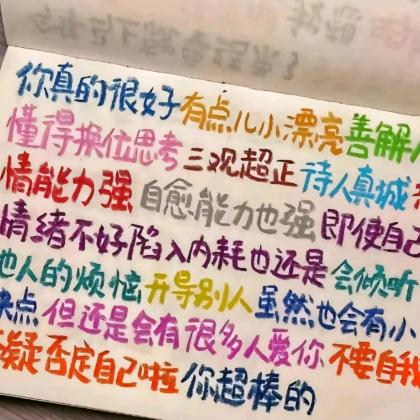 你真的很好 有点儿小漂亮 善解人
懂得换位思考 三观超正 待人真诚
情能力强 自愈能力也强 即使自己
情绪不好陷入内耗也还是 会倾听
他人的烦恼 开导别人 虽然也会有小
缺点 但还是会有很多人爱你 不要自我
疑否定自己啦 你超棒的